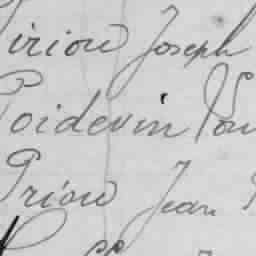 Piriou Joseph
Poidevin
Priou Jean